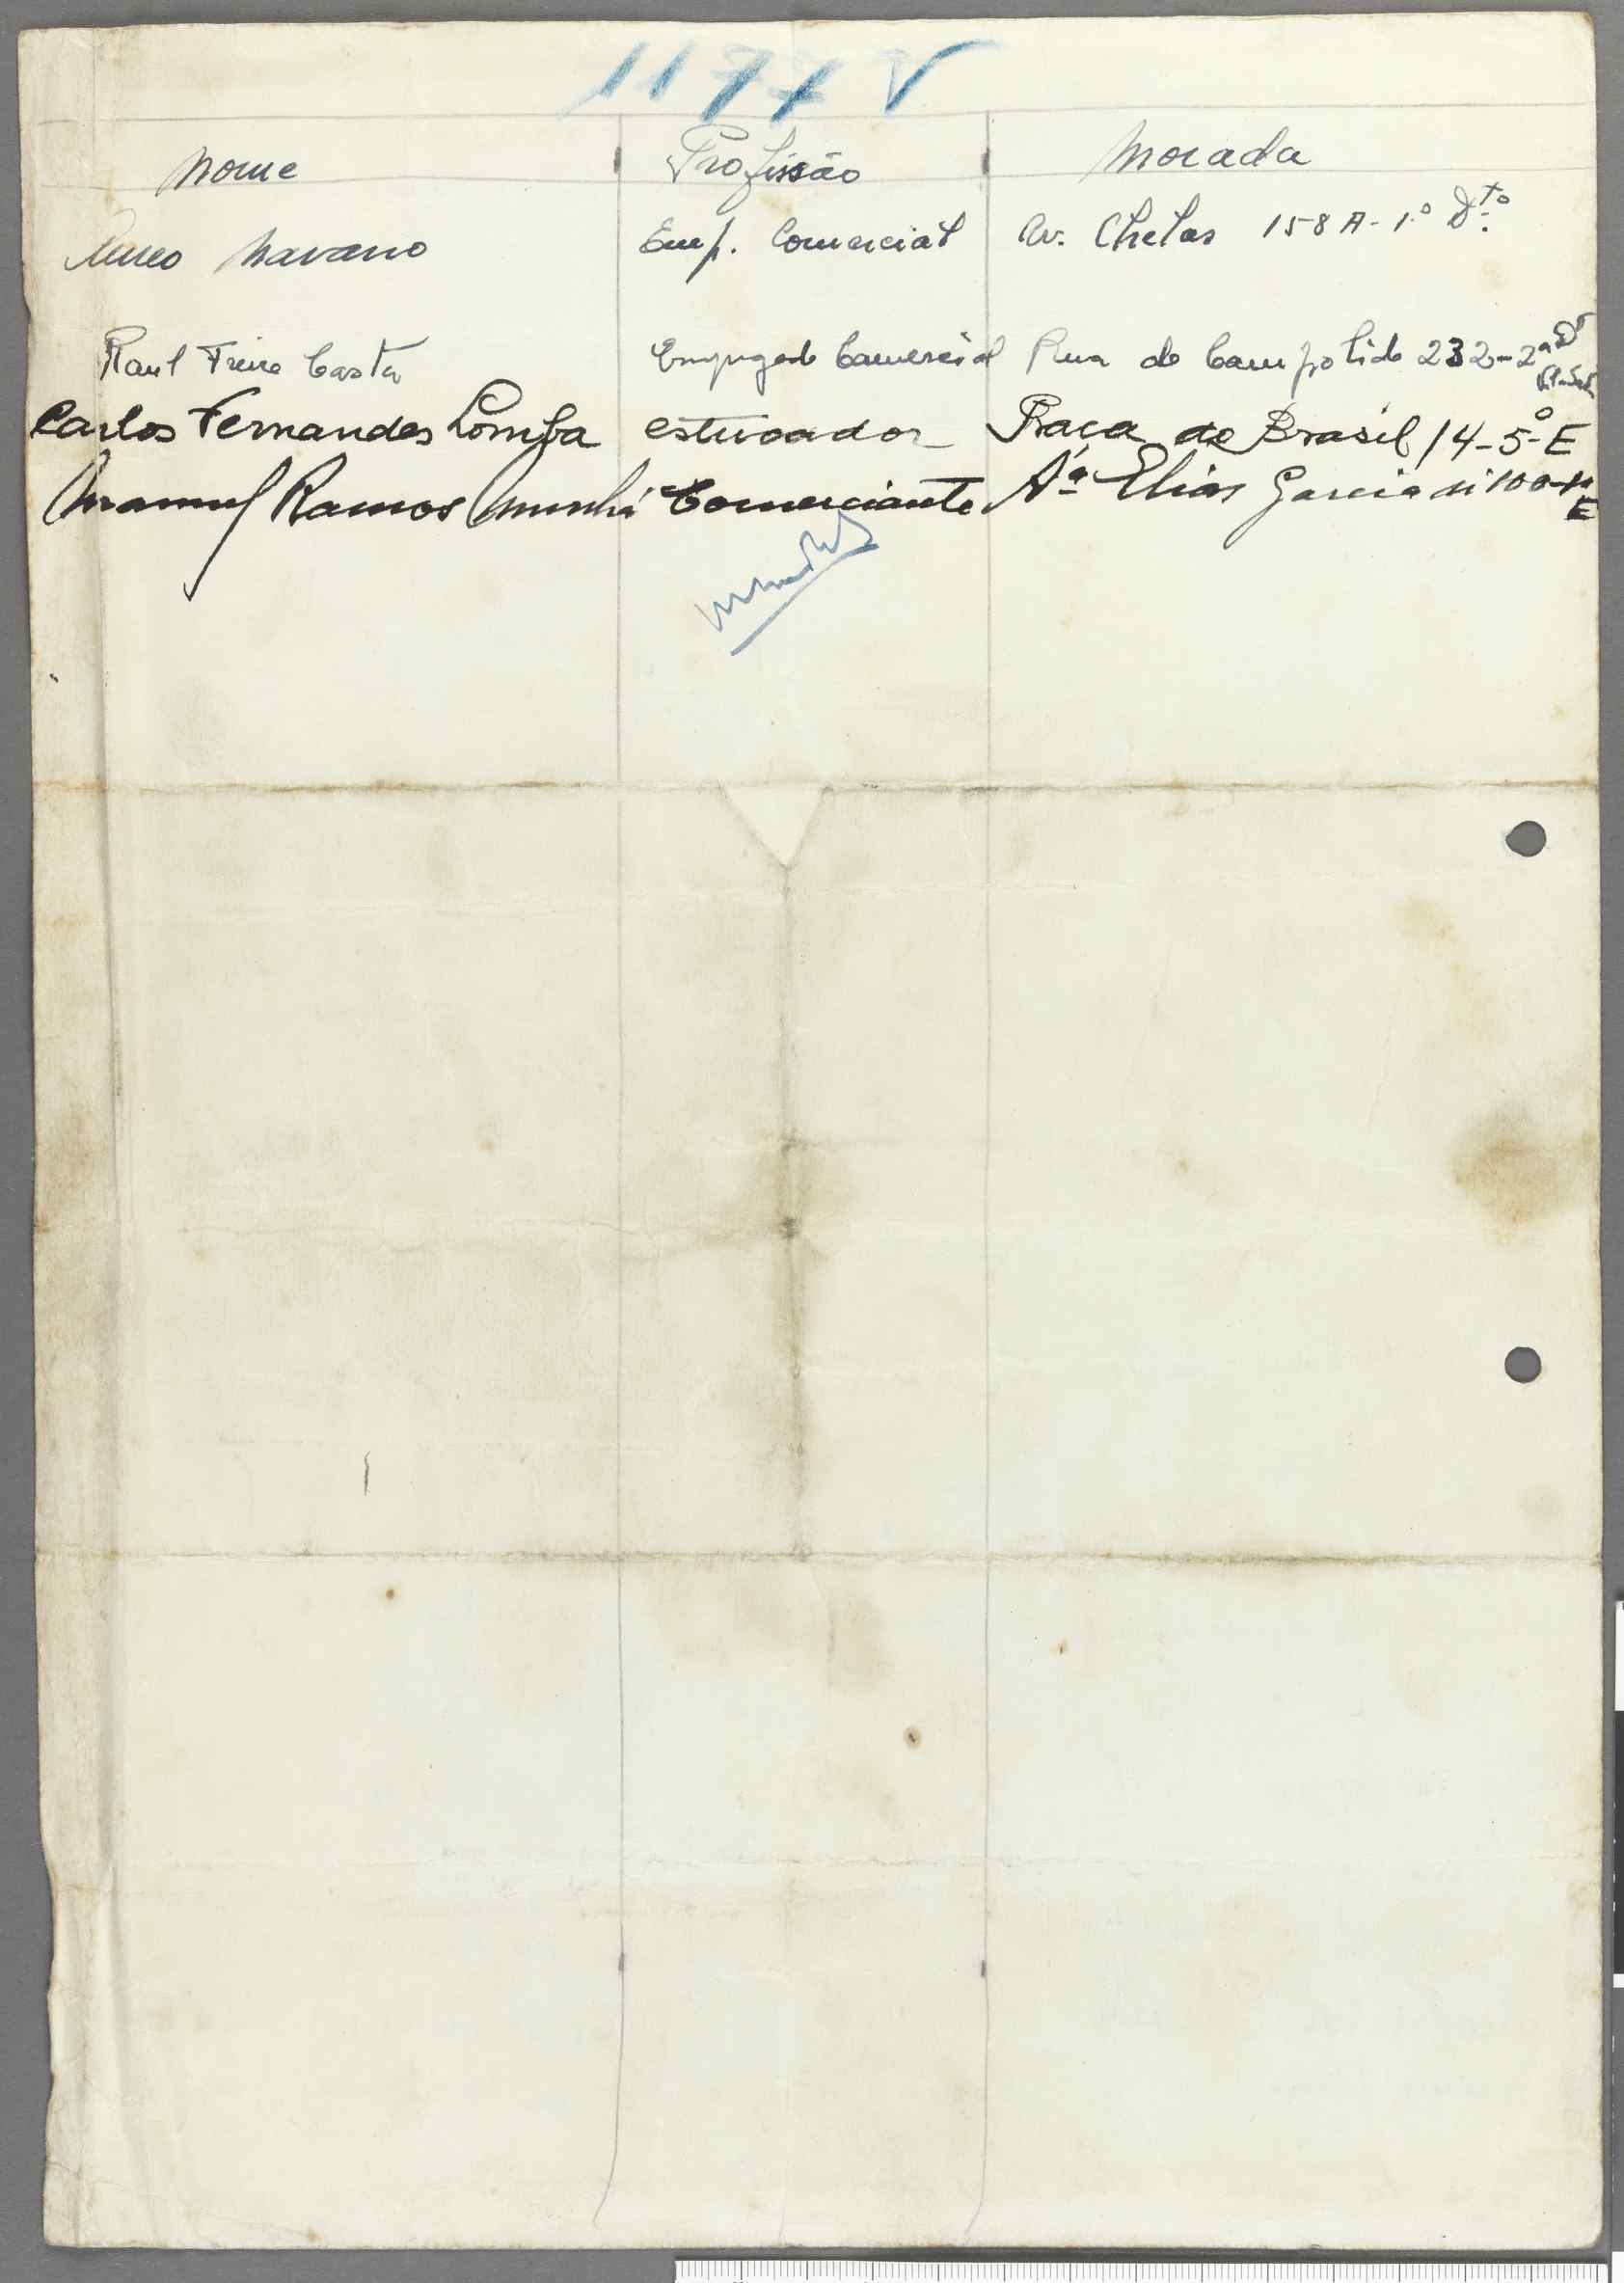 117 V
Nome Profissão Morada
Navarro Emp. Comercial Av. Chelas 158 A - 1.º Dto
Raul Freire Costa Empregado Comercial Rua de Campolide 232-2º Dt
Carlos Fernandes Lomba estucador Praça do Brasil 14-5º E
Manuel Ramos Munhá Comerciante Aª Elias Garcia nº 100-1º E